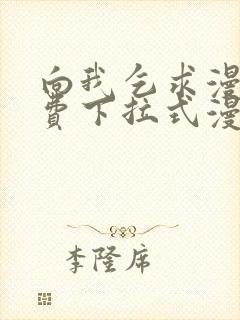 向我乞求漫
费下拉式漫
李隆席